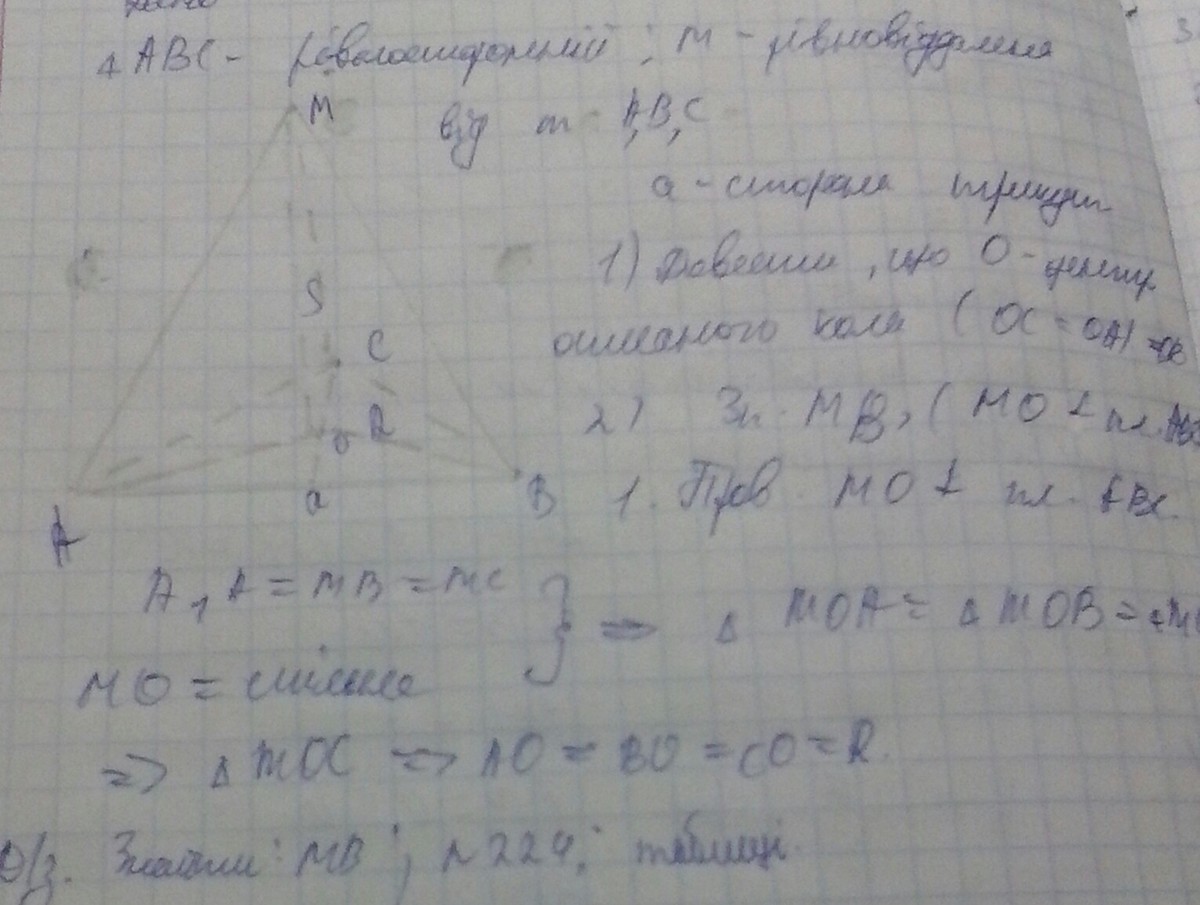 △ABC - рівносторонній; M - рівновіддалена
M
від т. A,B,C
a - сторона трикут
1) Довести, що O - центр
S
описаного кола (OC = OA = OB
C
2) Зн. MB, (MO ⊥ пл. ABC
O R
a
B
1. Пров. MO ⊥ пл. ABC.
A
A₁A = MB = MC
} => △ MOA = △ MOB = △ MO
MO = спільна
=> △ MOC => AO = BO = CO = R.
Д/з. Знайти: MB; №224; таблиці.